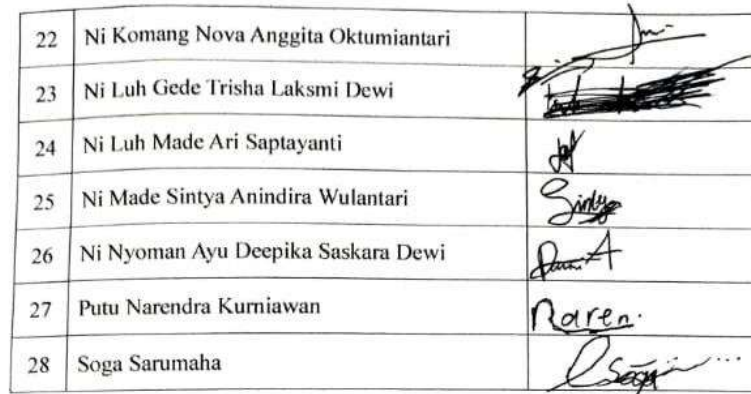 22 Ni Komang Nova Anggita Oktumiantari
23 Ni Luh Gede Trisha Laksmi Dewi
24 Ni Luh Made Ari Saptayanti
25 Ni Made Sintya Anindira Wulantari Sintya
26 Ni Nyoman Ayu Deepika Saskara Dewi
27 Putu Narendra Kurniawan Naren.
28 Soga Sarumaha Soga